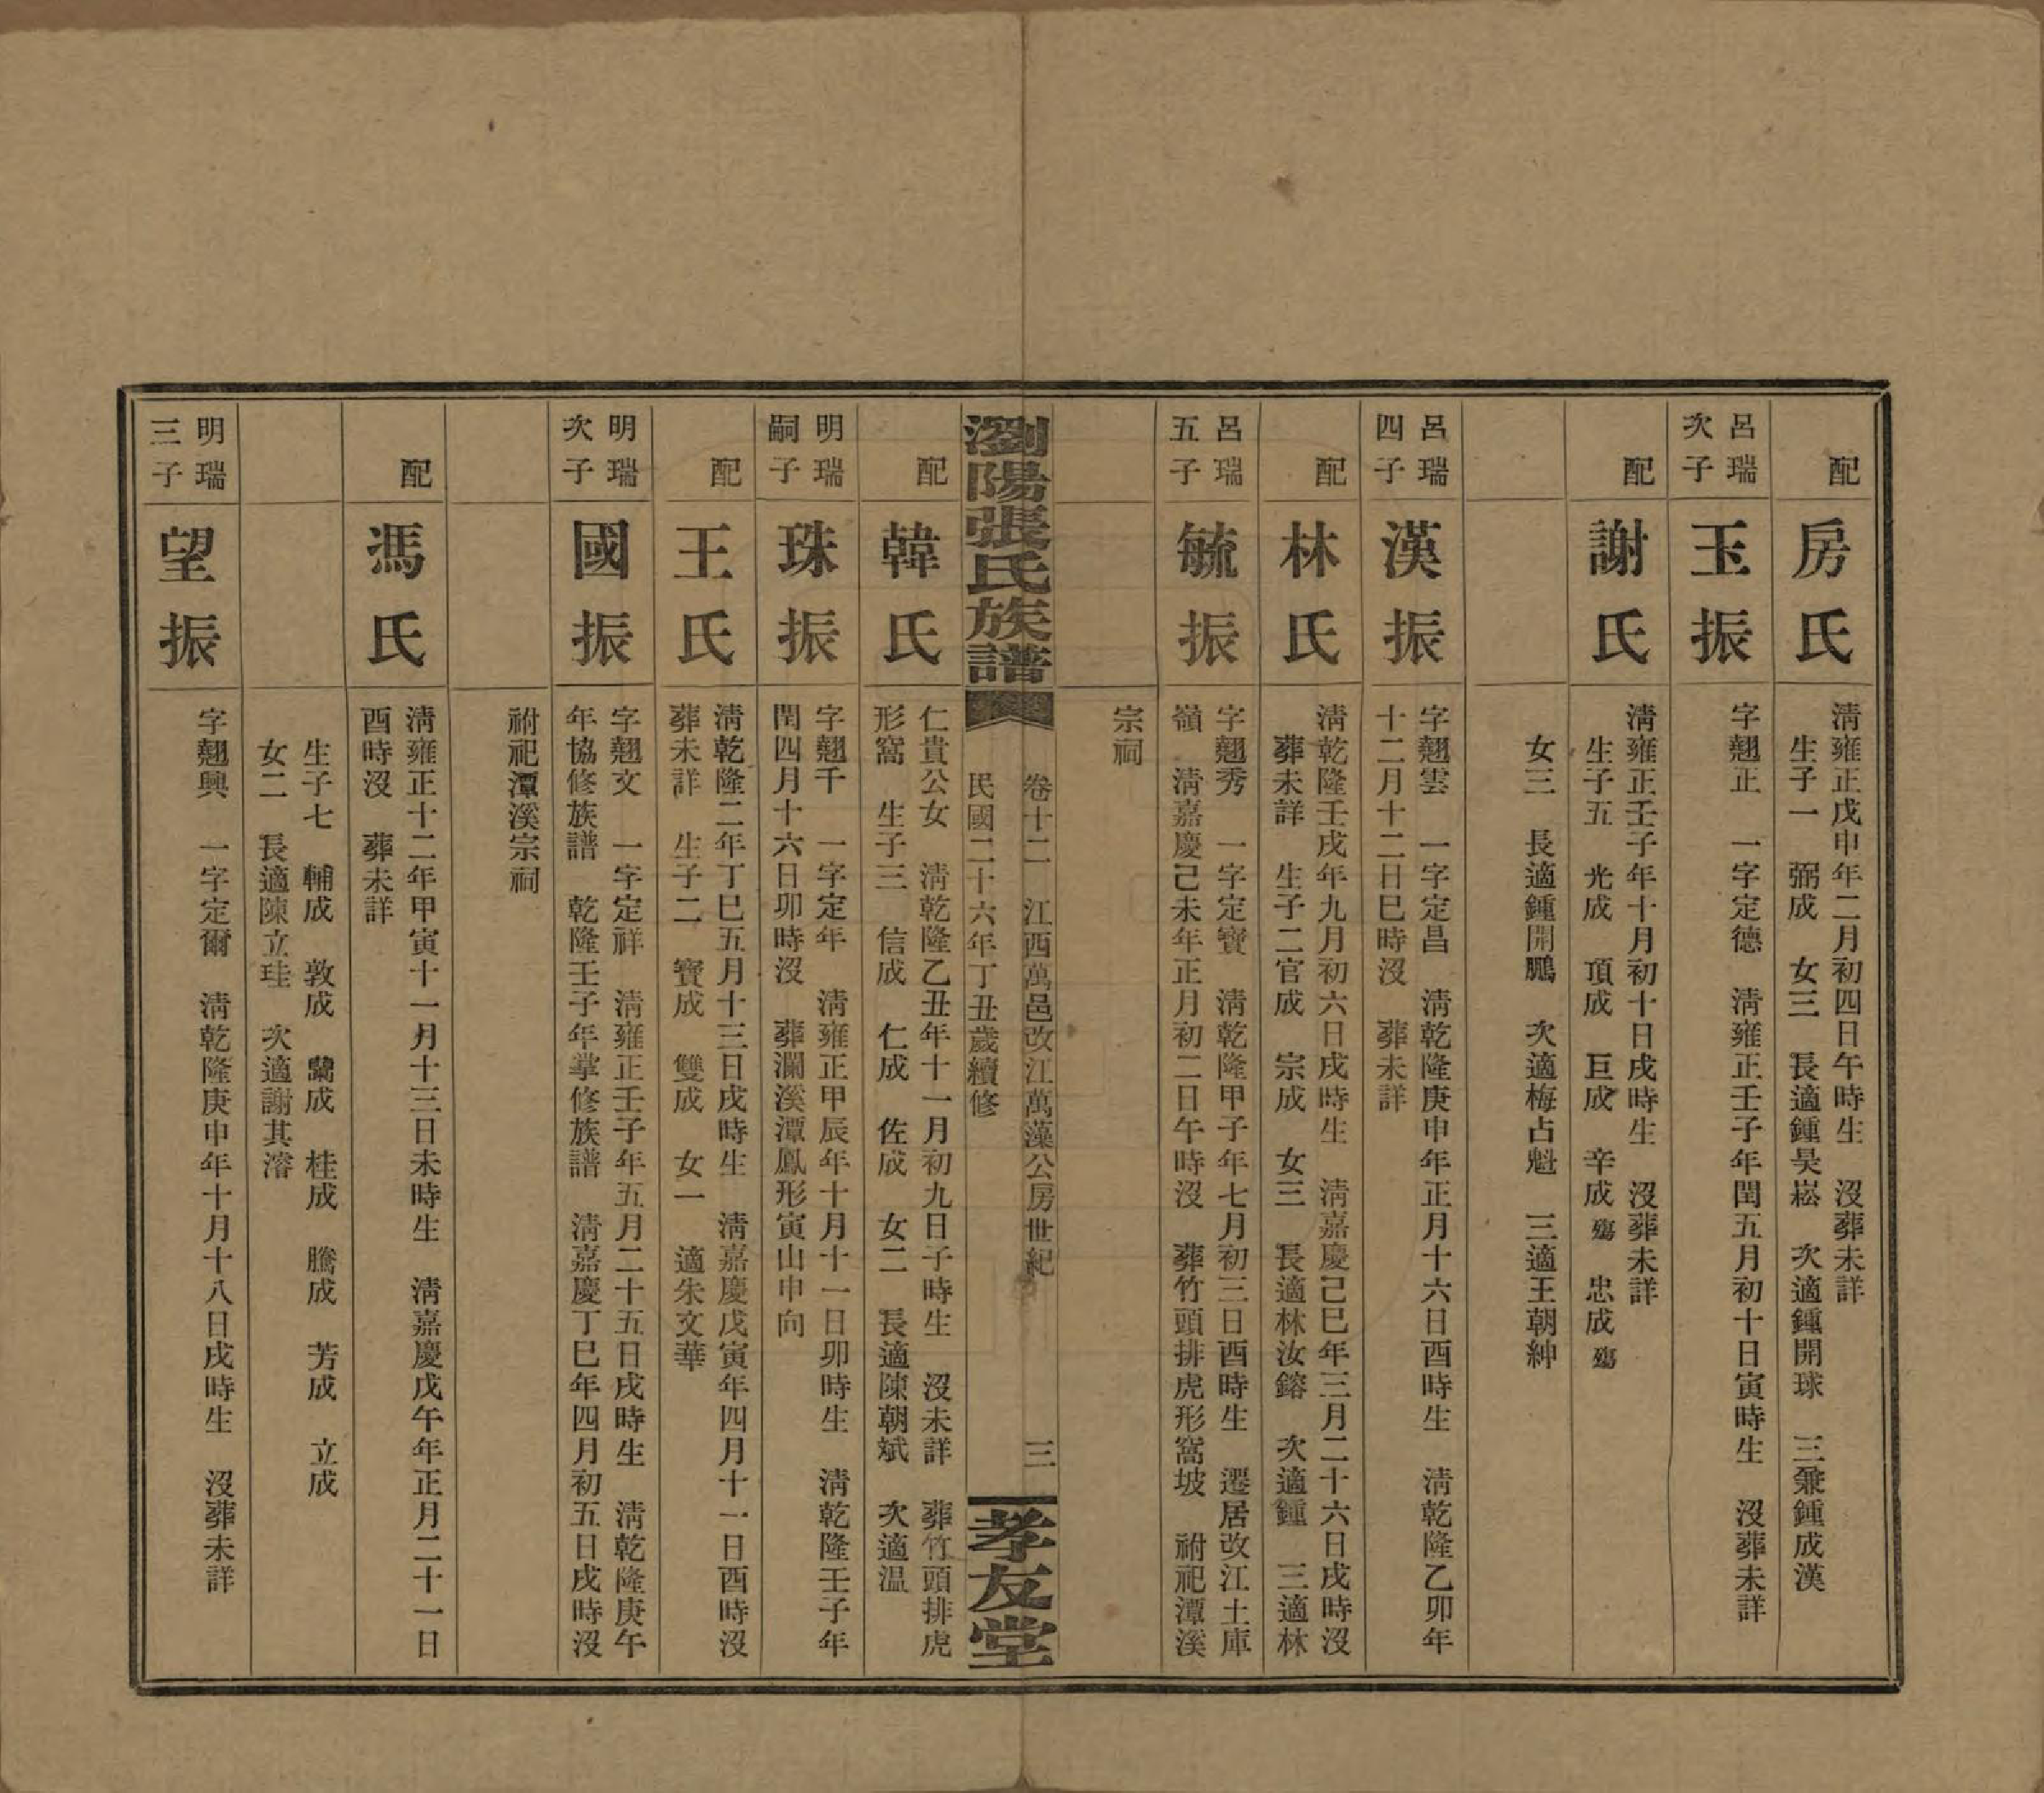 配
房氏
清雍正戊申年二月初四日午時生　沒葬未詳
生子一　弼成　女三　長適鍾昊崧　次適鍾開球　三藥鍾成漢
呂瑞
次子
玉振
字翹正　一字定德　清雍正壬子年閏五月初十日寅時生　沒葬未詳
配
謝氏
清雍正壬子年十月初十日戌時生　沒葬未詳
生子五　光成　頂成　巨成　辛成殤　忠成殤
女三　長適鍾開鵬　次適梅占魁　三適王朝紳
呂瑞
四子
漢振
字翹雲　一字定昌　清乾隆庚申年正月十六日酉時生　清乾隆乙卯年
十二月十二日巳時沒　葬未詳
配
林氏
清乾隆壬戌年九月初六日戌時生　清嘉慶己巳年三月二十六日戌時沒
葬未詳　生子二官成　宗成　女三　長適林汝鎔　次適鍾　三適林
呂瑞
五子
毓振
字翹秀　一字定寶　清乾隆甲子年七月初三日酉時生　遷居改江土庫
嶺　清嘉慶己未年正月初二日午時沒　葬竹頭排虎形窩坡　祔祀潭溪
宗祠
瀏陽張氏族譜
卷十二　江西萬邑改江萬藻公房世紀　三
民國二十六年丁丑歲續修
孝友堂
配
韓氏
仁貴公女　清乾隆乙丑年十一月初九日子時生　沒未詳　葬竹頭排虎
形窩　生子三　信成　仁成　佐成　女二　長適陳朝斌　次適温
明瑞
嗣子
珠振
字翹千　一字定年　清雍正甲辰年十月十一日卯時生　清乾隆壬子年
閏四月十六日卯時沒　葬瀾溪潭鳳形寅山申向
配
王氏
清乾隆二年丁巳五月十三日戌時生　清嘉慶戊寅年四月十一日酉時沒
葬未詳　生子二　寶成　雙成　女一　適朱文華
明瑞
次子
國振
字翹文　一字定祥　清雍正壬子年五月二十五日戌時生　清乾隆庚午
年協修族譜　乾隆壬子年掌修族譜　清嘉慶丁巳年四月初五日戌時沒
祔祀潭溪宗祠
配
馮氏
清雍正十二年甲寅十一月十三日未時生　清嘉慶戊午年正月二十一日
酉時沒　葬未詳
生子七　輔成　敦成　蘭成　桂成　騰成　芳成　立成
女二　長適陳立珪　次適謝其濬
明瑞
三子
望振
字翹興　一字定爾　清乾隆庚申年十月十八日戌時生　沒葬未詳